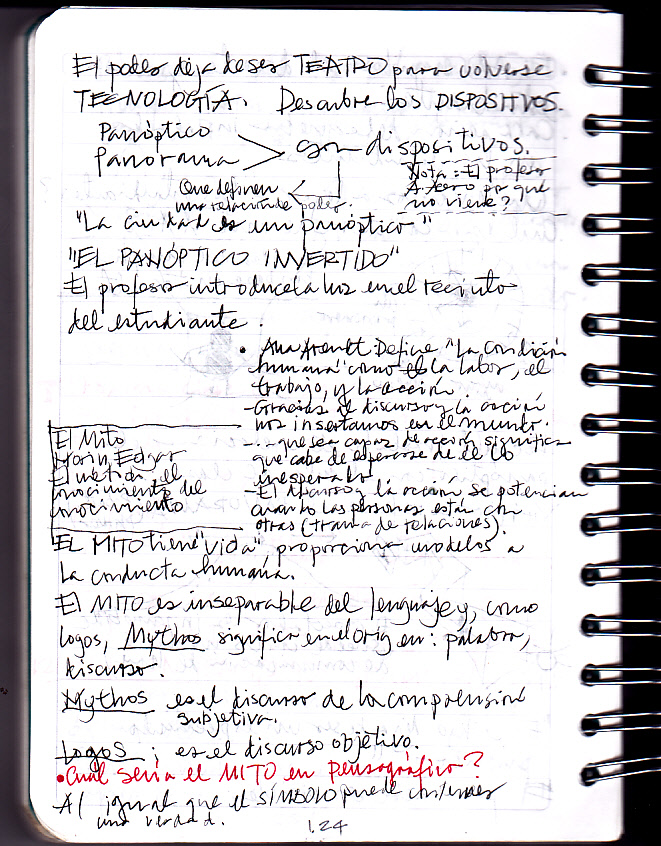 El poder deja de ser TEATRO para volverse
TECNOLOGÍA. Descubre los DISPOSITIVOS.
Panóptico
panorama
son dispositivos.
Que definen
una relación de poder.
Nota: El profesor
Acero por que
no viene?
"La ciudad es un panóptico"
"EL PANÓPTICO INVERTIDO"
El profesor introduce la luz en el recinto
del estudiante.
• Ana Arendt Define "La condición
humana" como la labor, el
trabajo, y la acción.
- Gracias al discurso y la acción
nos insertamos en el mundo.
- ...que sea capaz de acción significa
que cabe de esperarse de él lo
inesperado
- El discurso y la acción se potencian
cuando las personas están con
otras (trama de relaciones).
El Mito
Morin, Edgar
El método, el
conocimiento del
conocimiento
EL MITO tiene "vida", proporciona modelos a
la conducta humana.
El MITO es inseparable del lenguaje y, como
logos, Mythos significa en el origen: palabra,
discurso.
Mythos es el discurso de la comprensión
subjetiva.
Logos ; es el discurso objetivo.
• Cuál sería el MITO en pensográfico?
Al igual que el SÍMBOLO puede contener
una verdad.
124